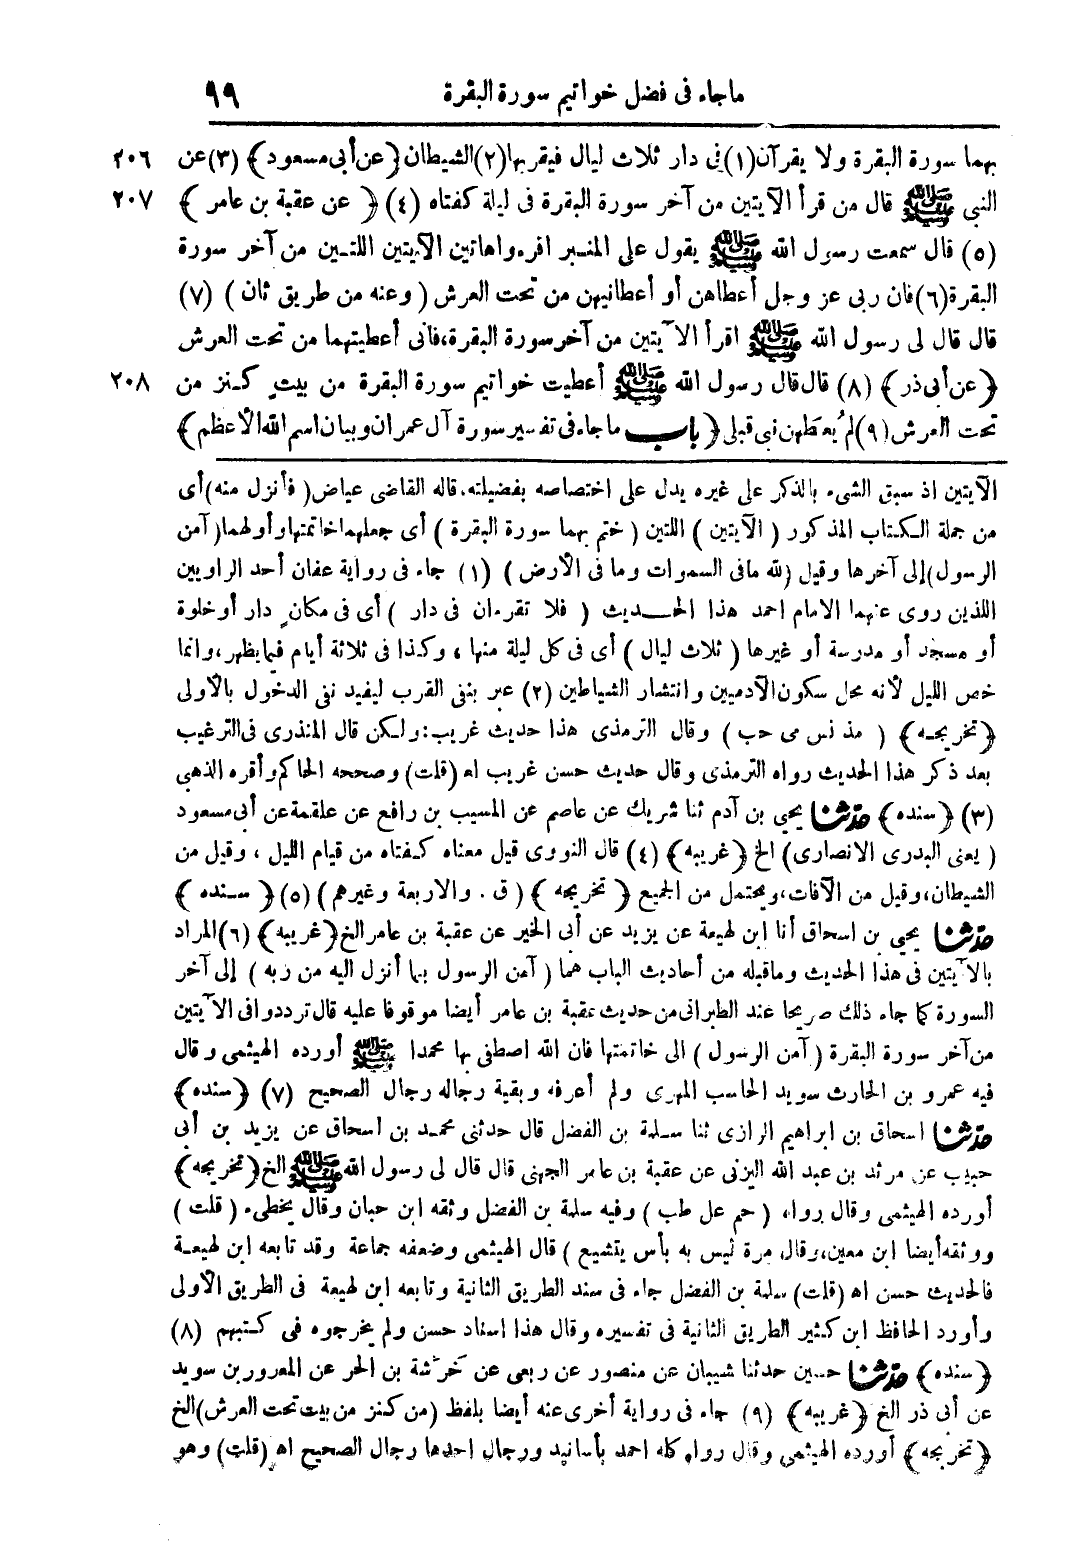 ما جاء في فضل خواتيم سورة البقرة ٩٩
بهما سورة البقرة ولا يقرآن(١)في دار ثلاث ليال فيقربها(٢)الشيطان{عن أبي مسعود}(٣)عن ٢٠٦
النبي ﷺ قال من قرأ الآيتين من آخر سورة البقرة في ليلة كفتاه (٤){ عن عقبة بن عامر } ٢٠٧
(٥) قال سمعت رسول الله ﷺ يقول على المنبر اقرءوا هاتين الآيتين اللتين من آخر سورة
البقرة(٦)فان ربي عز وجل أعطاهن أو أعطانيهن من تحت العرش ( وعنه من طريق ثان ) (٧)
قال قال لي رسول الله ﷺ اقرأ الآيتين من آخر سورة البقرة،فاني أعطيتهما من تحت العرش
{عن أبي ذر} (٨) قال قال رسول الله ﷺ أعطيت خواتيم سورة البقرة من بيت كنز من ٢٠٨
تحت العرش(٩)لم يُعطَهن نبي قبلي{باب ما جاء في تفسير سورة آل عمران وبيان اسم الله الأعظم}
الآيتين اذ سبق الشيء بالذكر على غيره يدل على اختصاصه بفضيلته.قاله القاضي عياض(فأنزل منه)أى
من جملة الكتاب المذكور ( الآيتين ) اللتين ( ختم بهما سورة البقرة ) أى جعلهما خاتمتها وأولهما(آمن
الرسول)إلى آخرها وقيل (لله ما في السموات وما في الأرض ) (١) جاء في رواية عفان أحد الراويين
اللذين روى عنهما الامام احمد هذا الحديث ( فلا تقرءان في دار ) أى في مكان دار أو خلوة
أو مسجد أو مدرسة أو غيرها ( ثلاث ليال ) أى في كل ليلة منها ، وكذا في ثلاثة أيام فيما يظهر،وانما
خص الليل لأنه محل سكون الآدميين وانتشار الشياطين (٢) عبر بنفي القرب ليفيد نفي الدخول بالأولى
{تخريجه} ( مذ نس مى حب ) وقال الترمذى هذا حديث غريب:ولكن قال المنذرى في الترغيب
بعد ذكر هذا الحديث رواه الترمذى وقال حديث حسن غريب اه (قلت) وصححه الحاكم وأقره الذهبي
(٣) {سنده} حدثنا يحيى بن آدم ثنا شريك عن عاصم عن المسيب بن رافع عن علقمة عن أبي مسعود
( يعني البدرى الانصارى) الخ {غريبه} (٤) قال النووى قيل معناه كفتاه من قيام الليل ، وقيل من
الشيطان،وقيل من الآفات،ويحتمل من الجميع { تخريجه } ( ق . والاربعة وغيرهم ) (٥) { سنده }
حدثنا يحيى بن اسحاق أنا ابن لهيعة عن يزيد عن أبي الخير عن عقبة بن عامر الخ{غريبه} (٦)المراد
بالآيتين في هذا الحديث وما قبله من أحاديث الباب هما ( آمن الرسول بما أنزل اليه من ربه ) إلى آخر
السورة كما جاء ذلك صريحا عند الطبراني من حديث عقبة بن عامر أيضا موقوفا عليه قال ترددوا في الآيتين
من آخر سورة البقرة (آمن الرسول ) الى خاتمتها فان الله اصطفى بها محمدا ﷺ أورده الهيثمي وقال
فيه عمرو بن الحارث سويد الحاسب المهرى ولم أعرفه وبقية رجاله رجال الصحيح (٧) {سنده}
حدثنا اسحاق بن ابراهيم الرازى ثنا سلمة بن الفضل قال حدثني محمد بن اسحاق عن يزيد بن أبي
حبيب عن مرثد بن عبد الله اليزنى عن عقبة بن عامر الجهني قال قال لي رسول الله ﷺ الخ{تخريجه}
أورده الهيثمي وقال رواه ( حم عل طب ) وفيه سلمة بن الفضل وثقه ابن حبان وقال يخطىء ( قلت )
ووثقه أيضا ابن معين،وقال مرة ليس به بأس يتشيع ) قال الهيثمي وضعفه جماعة وقد تابعه ابن لهيعة
فالحديث حسن اه (قلت) سلمة بن الفضل جاء في سند الطريق الثانية وتابعه ابن لهيعة في الطريق الأولى
وأورد الحافظ ابن كثير الطريق الثانية في تفسيره وقال هذا اسناد حسن ولم يخرجوه في كتبهم (٨)
{سنده} حدثنا حسين حدثنا شيبان عن منصور عن ربعى عن خرشة بن الحر عن المعرور بن سويد
عن أبي ذر الخ {غريبه} (٩) جاء في رواية أخرى عنه أيضا بلفظ (من كنز من بيت تحت العرش)الخ
{تخريجه} أورده الهيثمي وقال رواه كله احمد بأسانيد ورجال احدها رجال الصحيح اه (قلت) وهو